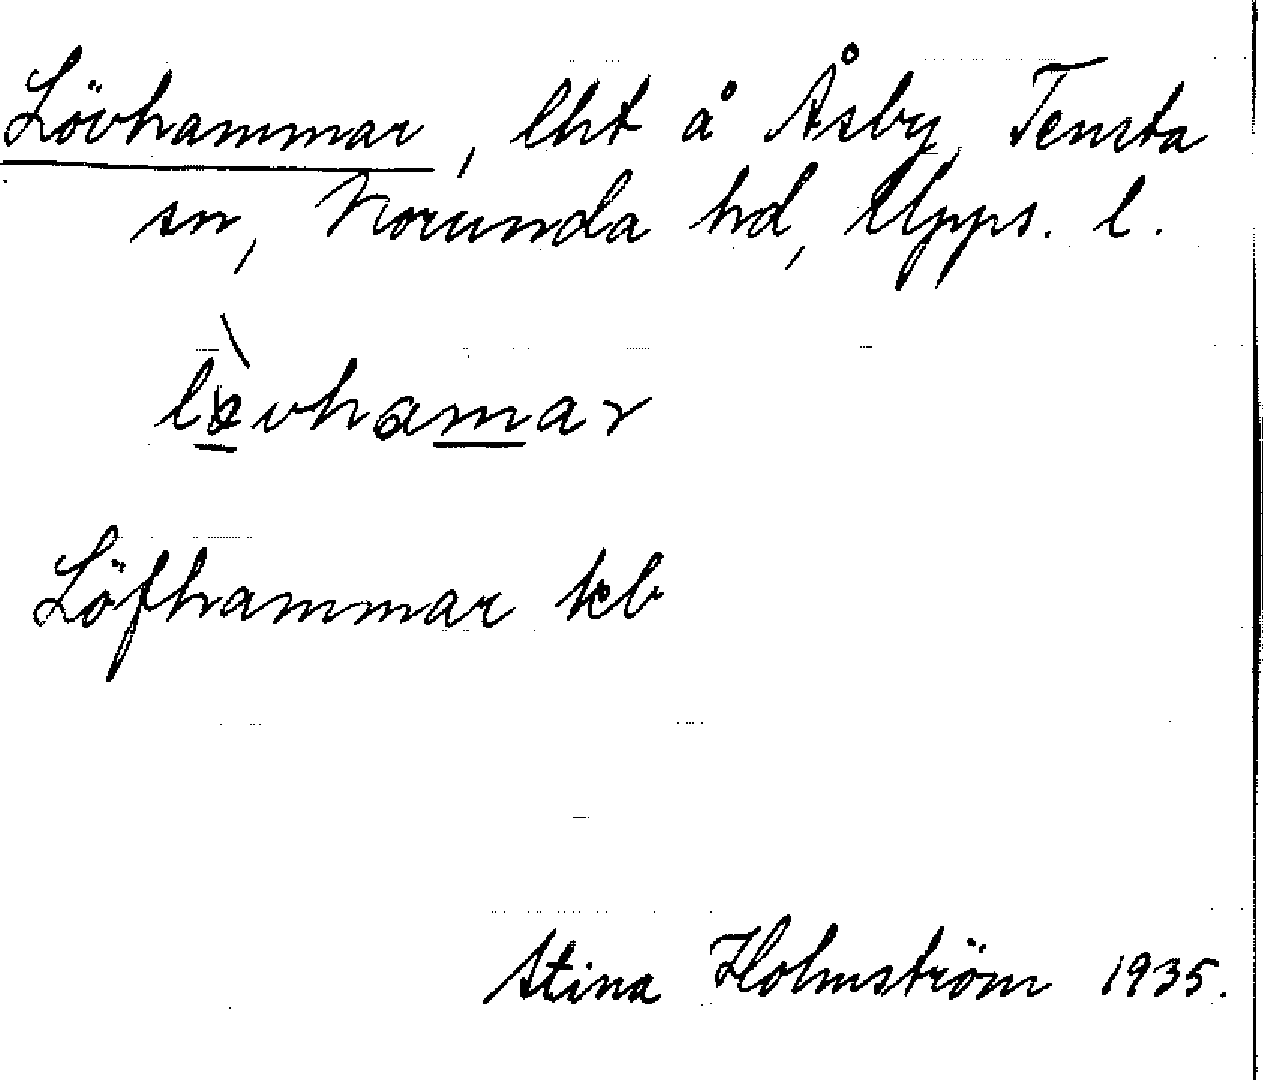 Lövhammar, lht å Åsby, Tensta
sn, Norunda hd, Upps. l.
Löfhammar kb
Stina Holmström 1935.